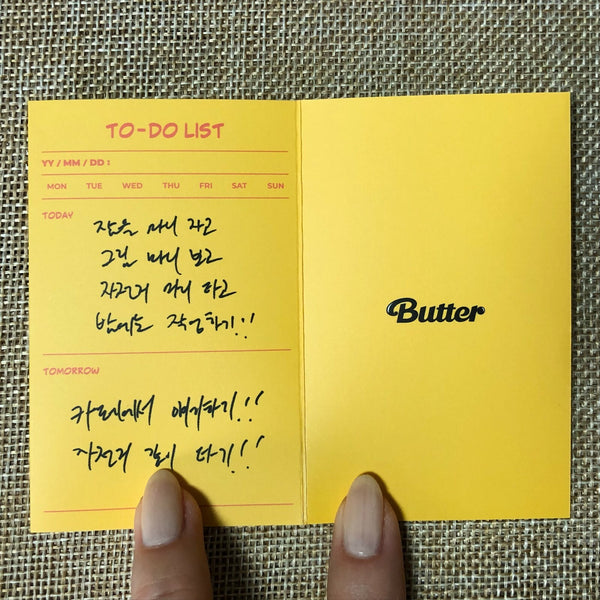 TO-DO LIST
YY / MM / DD :
MON TUE WED THU FRI SAT SUN
TODAY
잠을 마니 자고
그림 마니 보고
자전거 마니 타고
밤에도 작업하기!!
TOMORROW
카페에서 얘기하기!!
자전거 같이 타기!!
Butter